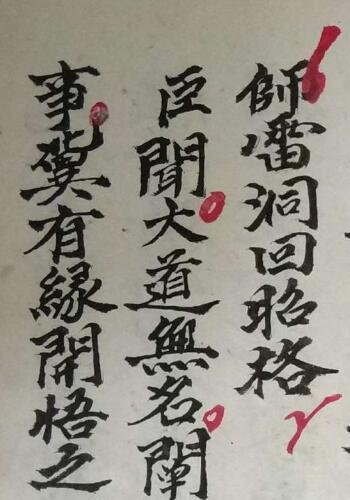 師洞回昭格
臣聞大道無名闡
事冀有緣開悟之